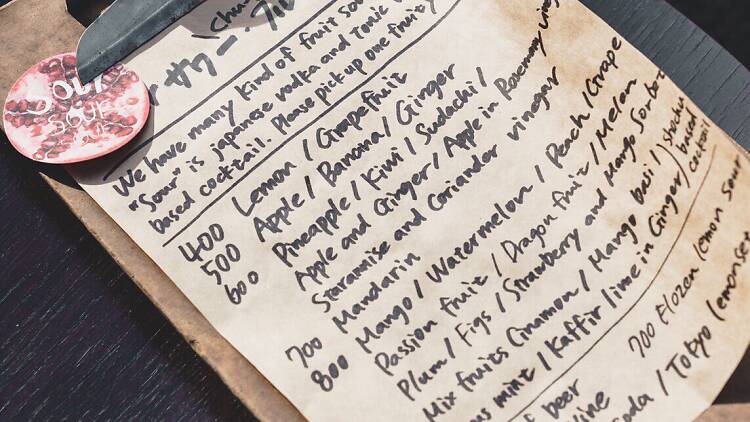 Sour
Sour
サワー
We have many kind of fruit sou
"Sour" is japanese vodka and tonic
based cocktail. Please pick up one fruity
400 Lemon / Grapefruit
500 Apple / Banana / Ginger
600 Pineapple / Kiwi / Sudachi /
Apple and Ginger / Apple in Rosemary vineg
Starannise and Coriander vinegar
700 Mandarin
800 Mango / Watermelon / Peach / Grape
Passion fruit / Dragon fruit / Melon
Plum / Figs / Strawberry and Mango Sorbe
Mix fruits Cinamon / Mango basil shochu
us mint / Kaffir lime in Ginger based
cocktail
700 Flozen lemon sour
f beer
Wine
oda / Tokyo lemonse